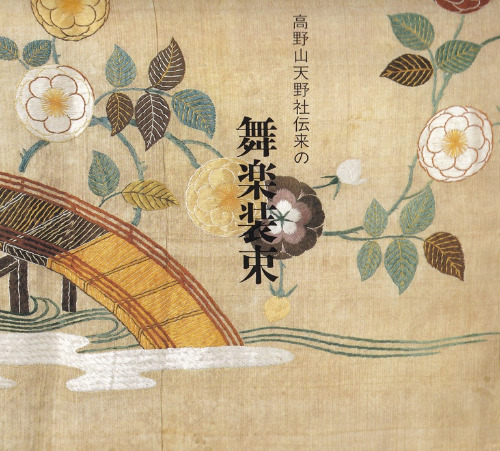 高野山天野社伝来の
舞楽装束